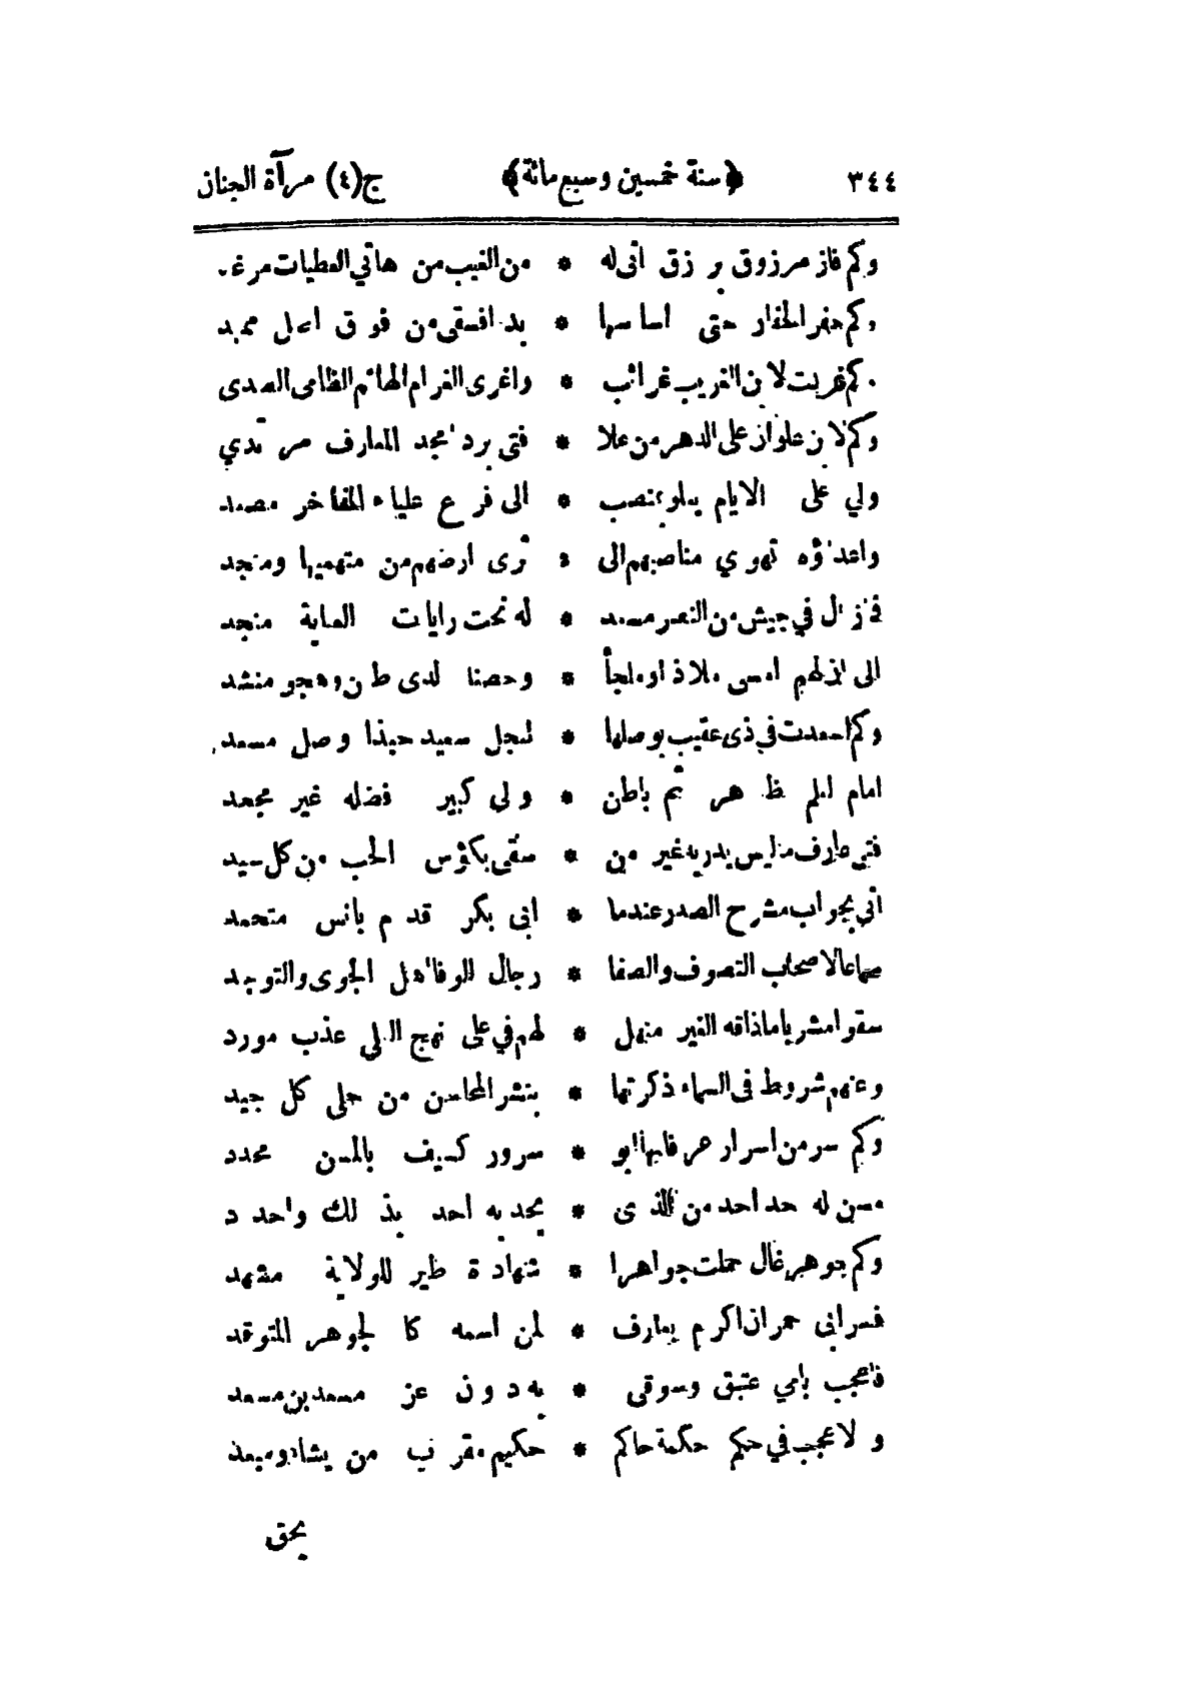 ٣٤٤ ﴿سنة خمسين وسبع مائة﴾ ج(٤) مرآة الجنان
وكم فاز مرزوق برزق اتى له * من الغيب من هاتي العطيات مرغد
وكم حفر الحفار حتى اساسها * فوق اعلى
وكم قربت لابن الغريب غرائب * واغرى الغرام الهائم الظامى الصدى
وكم لابن علوان على الدهر من علا * فتى برد امجد المعارف مرتدي
ولي على الايام يعلو بمنصب * الى فرع علياء المفاخر مصعد
واعداؤه تهوي مناصبهم الى * ثرى ارضهم من متهميها ومنجد
فما زال في جيش من النصر مسعد * له تحت رايات العناية منجد
الى نزلهم امسى ملاذا وملجأ * وحصنا لدى منشد
وكم اسعدت في ذى عقيب بوصلها * لنجل سعيد حبذا وصل مسعد
امام لعلم ظاهر ثم باطن * ولى كبير فضله غير مجحد
فتى عارف ما ليس يدريه غير من * سقى بكؤس الحب من كل سيد
اتى بجواب مشرح الصدر عندما * ابى بكر قدم
سماعا لاصحاب التصوف والصفا * رجال للوفا اهل الجوى والتوجد
سقوا مشربا ما ذاقه الغير منهل * لهم في على نهج العلى عذب مورد
وعنهم شروط فى السماء ذكرتها * بنشر المحاسن من حلى كل جيد
وكم سر من اسرار عرفانها ابو * سرور كسيف بالمسن محدد
مسن له حد احد من الذى * يحد به احد بذلك واحدد
وكم جوهر غال حملت جواهرا * شهادة طير للولاية مشهد
فسر ابى حمران اكرم بعارف * لمن اسمه كالجوهر المتوقد
فاعجب بامي عتيق وسوقى * به دون عز مسعد بن مسعد
ولا عجب في حكم حكمة حاكم * حكيم مقرب من يشاء ومبعد
بحق